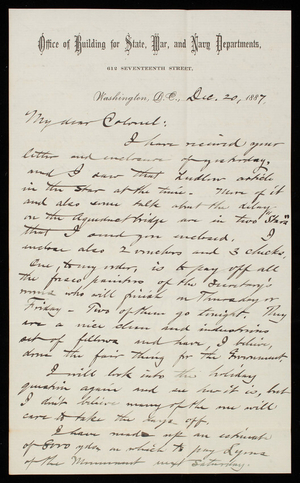 Office of Building for State, War, and Navy Departments,
612 SEVENTEENTH STREET,
Washington, D.C., Dec. 20, 1887.
My dear Colonel:
I have received your
letter and enclosure of yesterday,
and I saw that Ludlow article
in the Star at the time. More of it
and also some talk about the delay
on the Aqueduct bridge are in two "Stars"
that I send you enclosed. I
enclose also 2 vouchers and 3 checks.
One, to my order, is to pay off all
the fresco painters of the Secretary's
room who will finish on Thursday or
Friday - Two of them go tonight. They
are a nice clean and industrious
set of fellows and have, I believe,
done the fair thing for the Government.
I will look into the holiday
question again and see how it is, but
I don't believe many of the men will
care to take the days off.
I have made up an estimate
of on which to pay
of the Monument next Saturday.